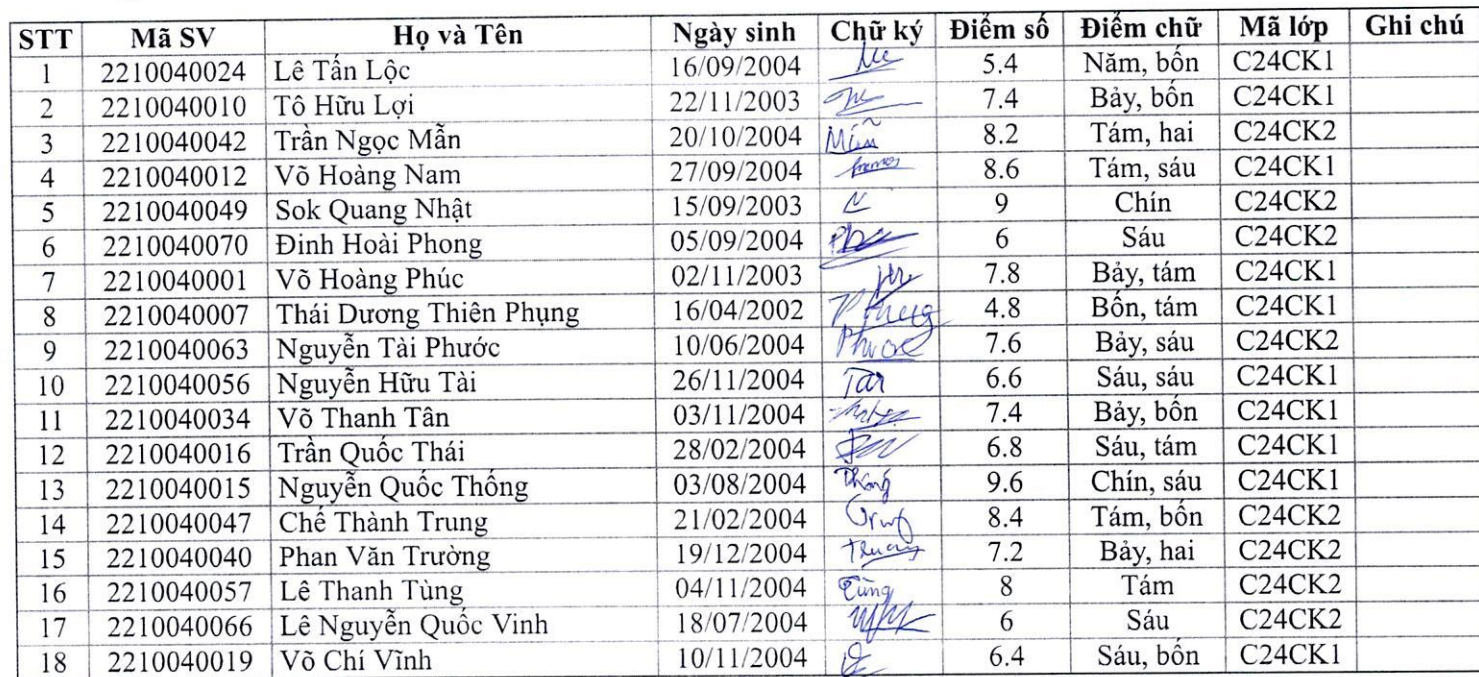 STT Mã SV Họ và Tên Ngày sinh Chữ ký Điểm số Điểm chữ Mã lớp Ghi chú
1 2210040024 Lê Tấn Lộc 16/09/2004 5.4 Năm, bốn C24CK1
2 2210040010 Tô Hữu Lợi 22/11/2003 7.4 Bảy, bốn C24CK1
3 2210040042 Trần Ngọc Mẫn 20/10/2004 Mẫn 8.2 Tám, hai C24CK2
4 2210040012 Võ Hoàng Nam 27/09/2004 8.6 Tám, sáu C24CK1
5 2210040049 Sok Quang Nhật 15/09/2003 9 Chín C24CK2
6 2210040070 Đinh Hoài Phong 05/09/2004 6 Sáu C24CK2
7 2210040001 Võ Hoàng Phúc 02/11/2003 7.8 Bảy, tám C24CK1
8 2210040007 Thái Dương Thiên Phụng 16/04/2002 4.8 Bốn, tám C24CK1
9 2210040063 Nguyễn Tài Phước 10/06/2004 7.6 Bảy, sáu C24CK2
10 2210040056 Nguyễn Hữu Tài 26/11/2004 6.6 Sáu, sáu C24CK1
11 2210040034 Võ Thanh Tân 03/11/2004 7.4 Bảy, bốn C24CK1
12 2210040016 Trần Quốc Thái 28/02/2004 6.8 Sáu, tám C24CK1
13 2210040015 Nguyễn Quốc Thống 03/08/2004 9.6 Chín, sáu C24CK1
14 2210040047 Chế Thành Trung 21/02/2004 8.4 Tám, bốn C24CK2
15 2210040040 Phan Văn Trường 19/12/2004 7.2 Bảy, hai C24CK2
16 2210040057 Lê Thanh Tùng 04/11/2004 Tùng 8 Tám C24CK2
17 2210040066 Lê Nguyễn Quốc Vinh 18/07/2004 6 Sáu C24CK2
18 2210040019 Võ Chí Vĩnh 10/11/2004 6.4 Sáu, bốn C24CK1